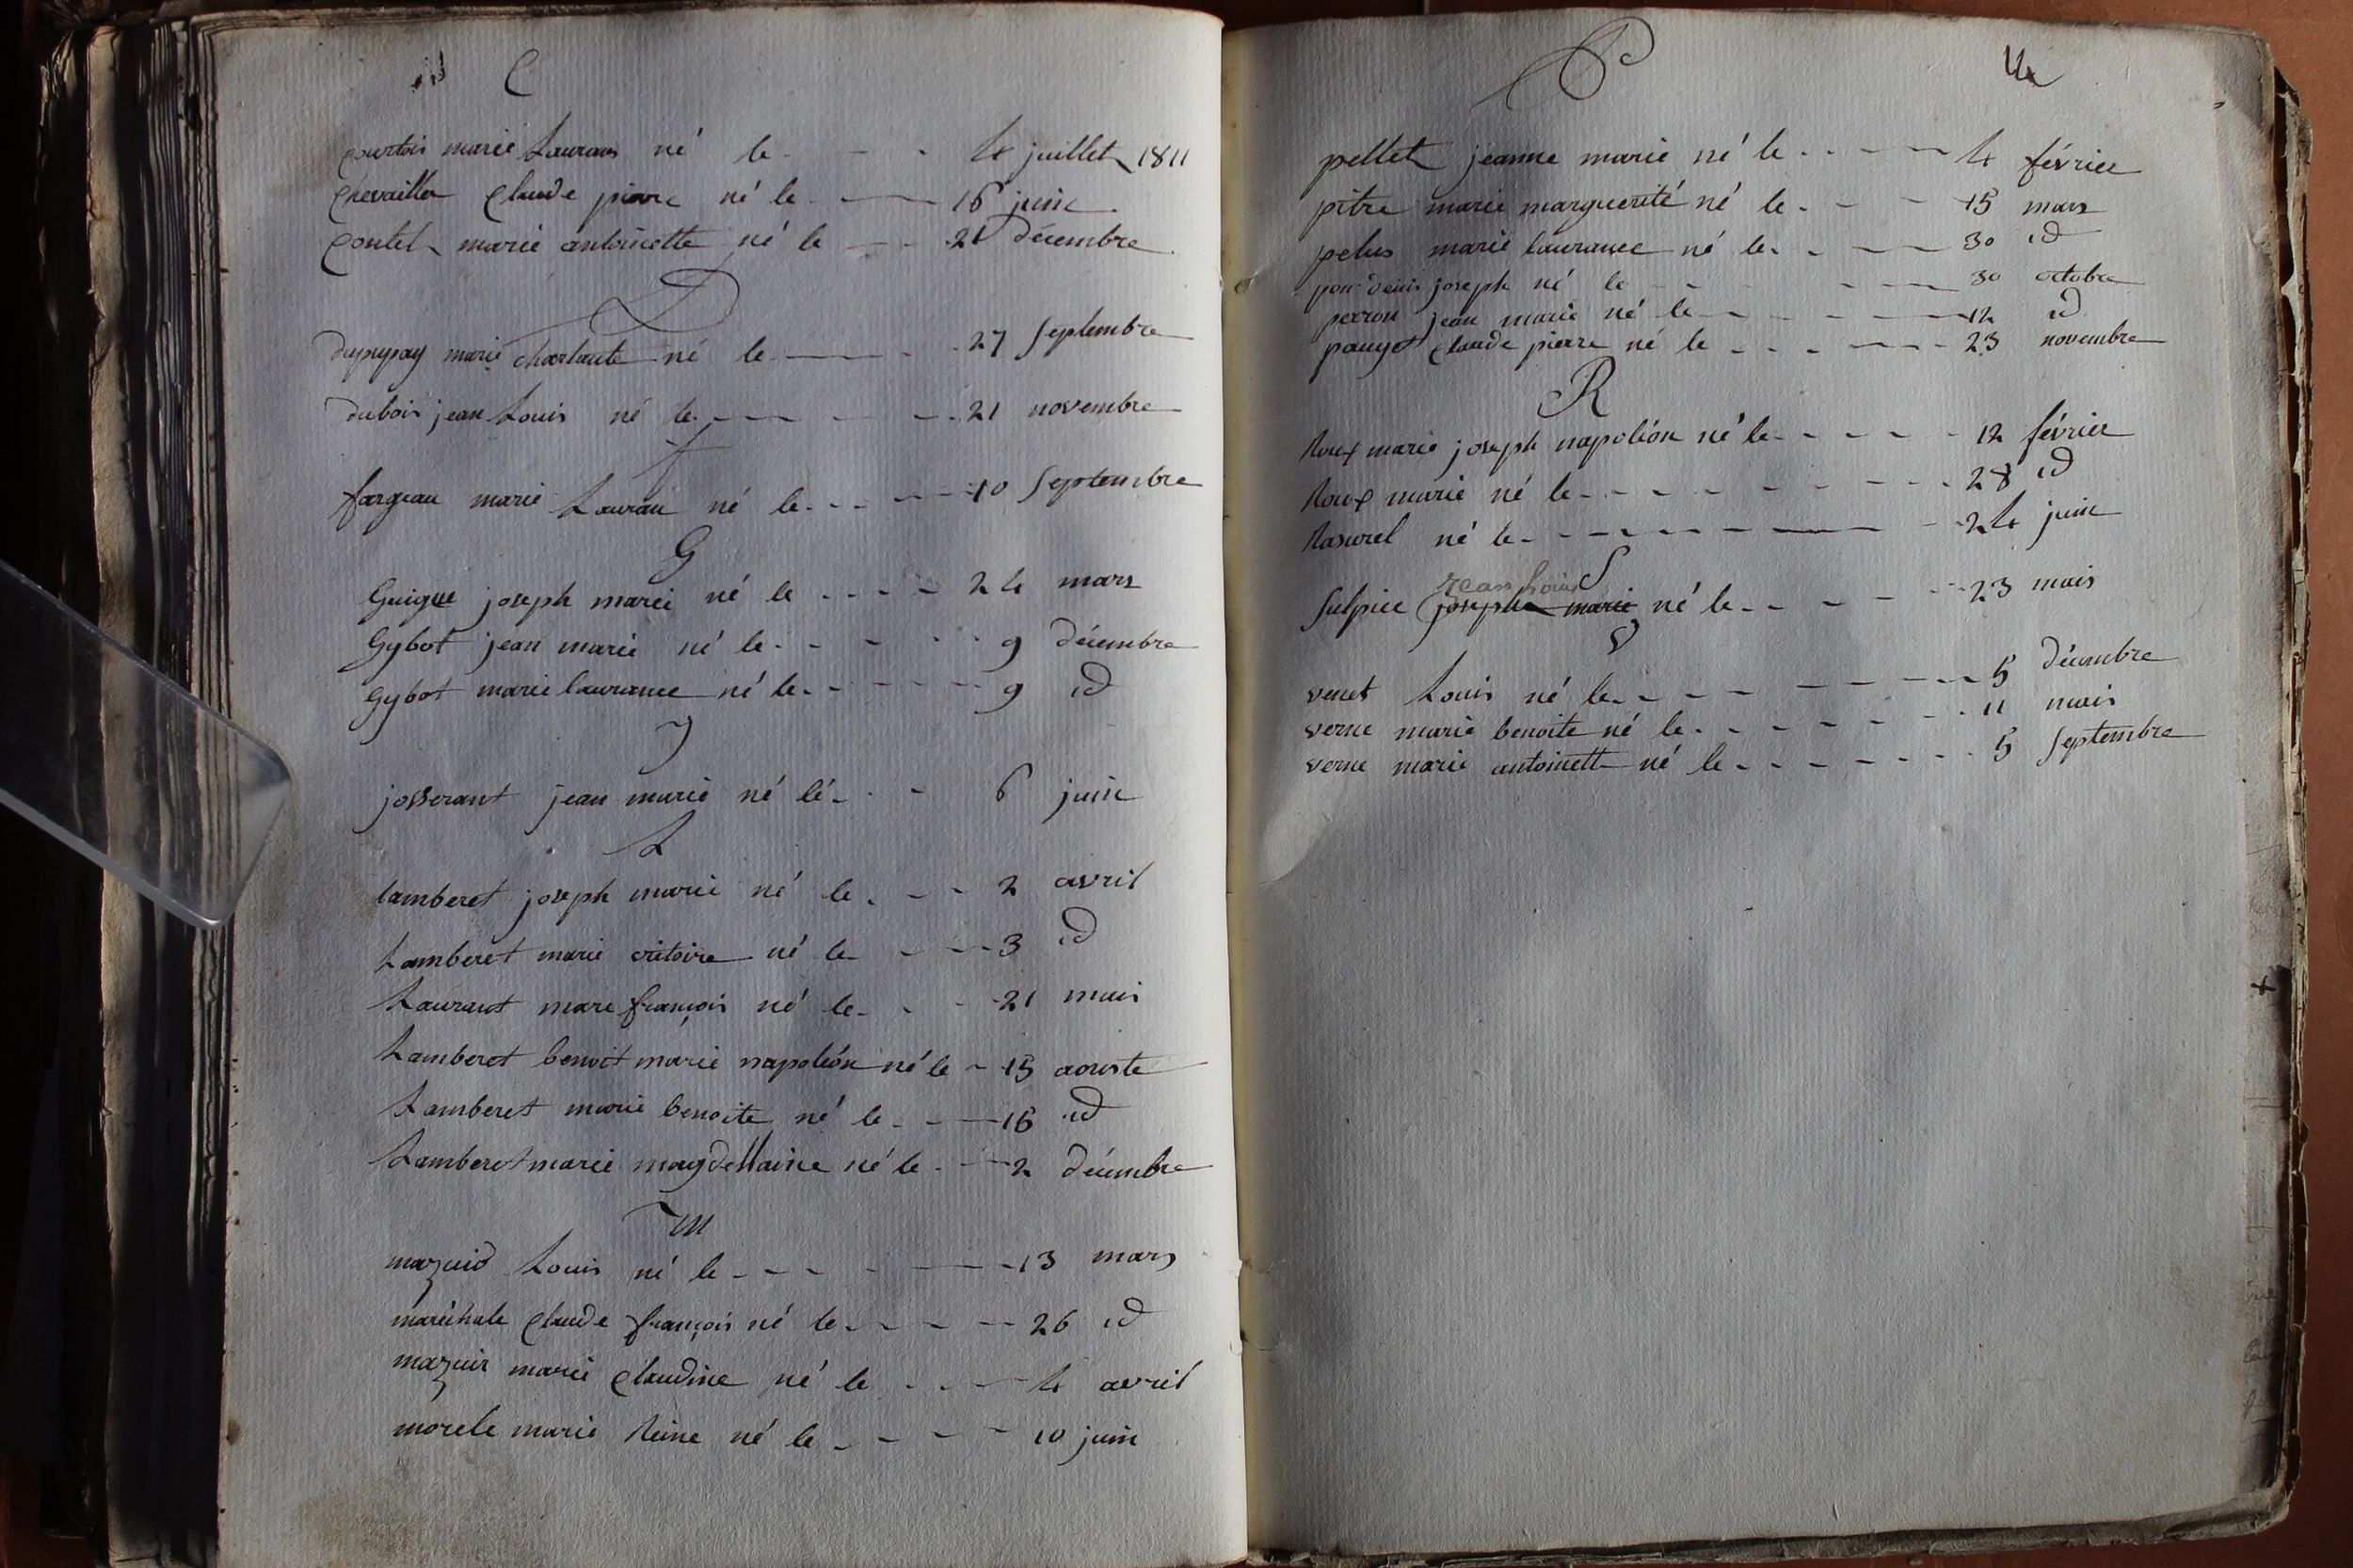 C
Courtois marie Lauraus né le 4 juillet 1811
Chevailler Claude pierre né le 16 juin
Contet marie antoinette né le 21 décembre
D
dupupay marie charlaute né le 27 Septembre
dubois jean Louis né le 21 novembre
f
fargeau marie Laurau né le 10 Septembre
G
Guigue joseph marei né le 24 mars
Gybot jean marie né le 9 décembre
Gybot marie laurance né le 9 id
J
josserant jean marie né lé 6 juin
L
lamberet joseph marie né le 2 avril
Lamberet marie vitoire né le 3 id
Laurant mare françois né le 21 mais
Lamberet benoit marie napoléon né le 15 aouste
Lamberet marie benoite né le 16 id
Lamberet marie magdellaine né le 2 décembre
M
mazuid Louis né le 13 mars
maréchale Claude françois né le 26 id
mazuir marie Claudine né le 4 avril
morele marie Reine né le 10 juin
P
pellet jeanne marie né le 4 février
pitre marie marguerité né le 15 mars
pelus marie laurance né le 30 id
joseph né le 30 octobre
perron jean marie né le 12 id
pauget Claude pierre né le 23 novembre
R
Roux marie joseph napoléon né le 12 février
Roux marie né le 28 id
Rasurel né le 24 juin
S
Jean Louis
Sulpice joseph marie né le 23 mais
V
venet Louis né le 5 décembre
verne marie benoite né le 11 mais
verne marie antoinett né le 5 Septembre